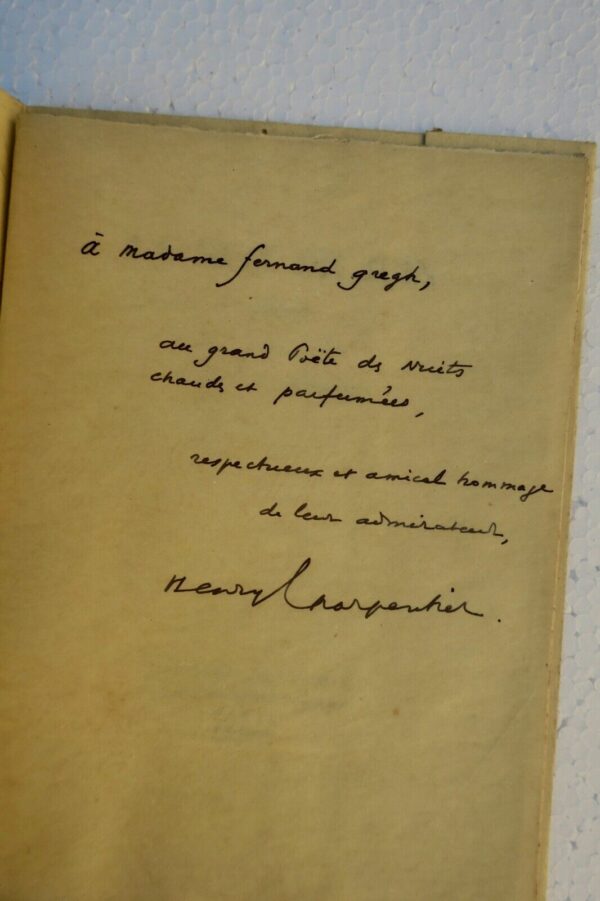 à Madame Fernand Gregh,
au grand Poëte des Nuits
chaudes et parfumées,
respectueux et amical hommage
de leur admirateur,
Henry Charpentier.